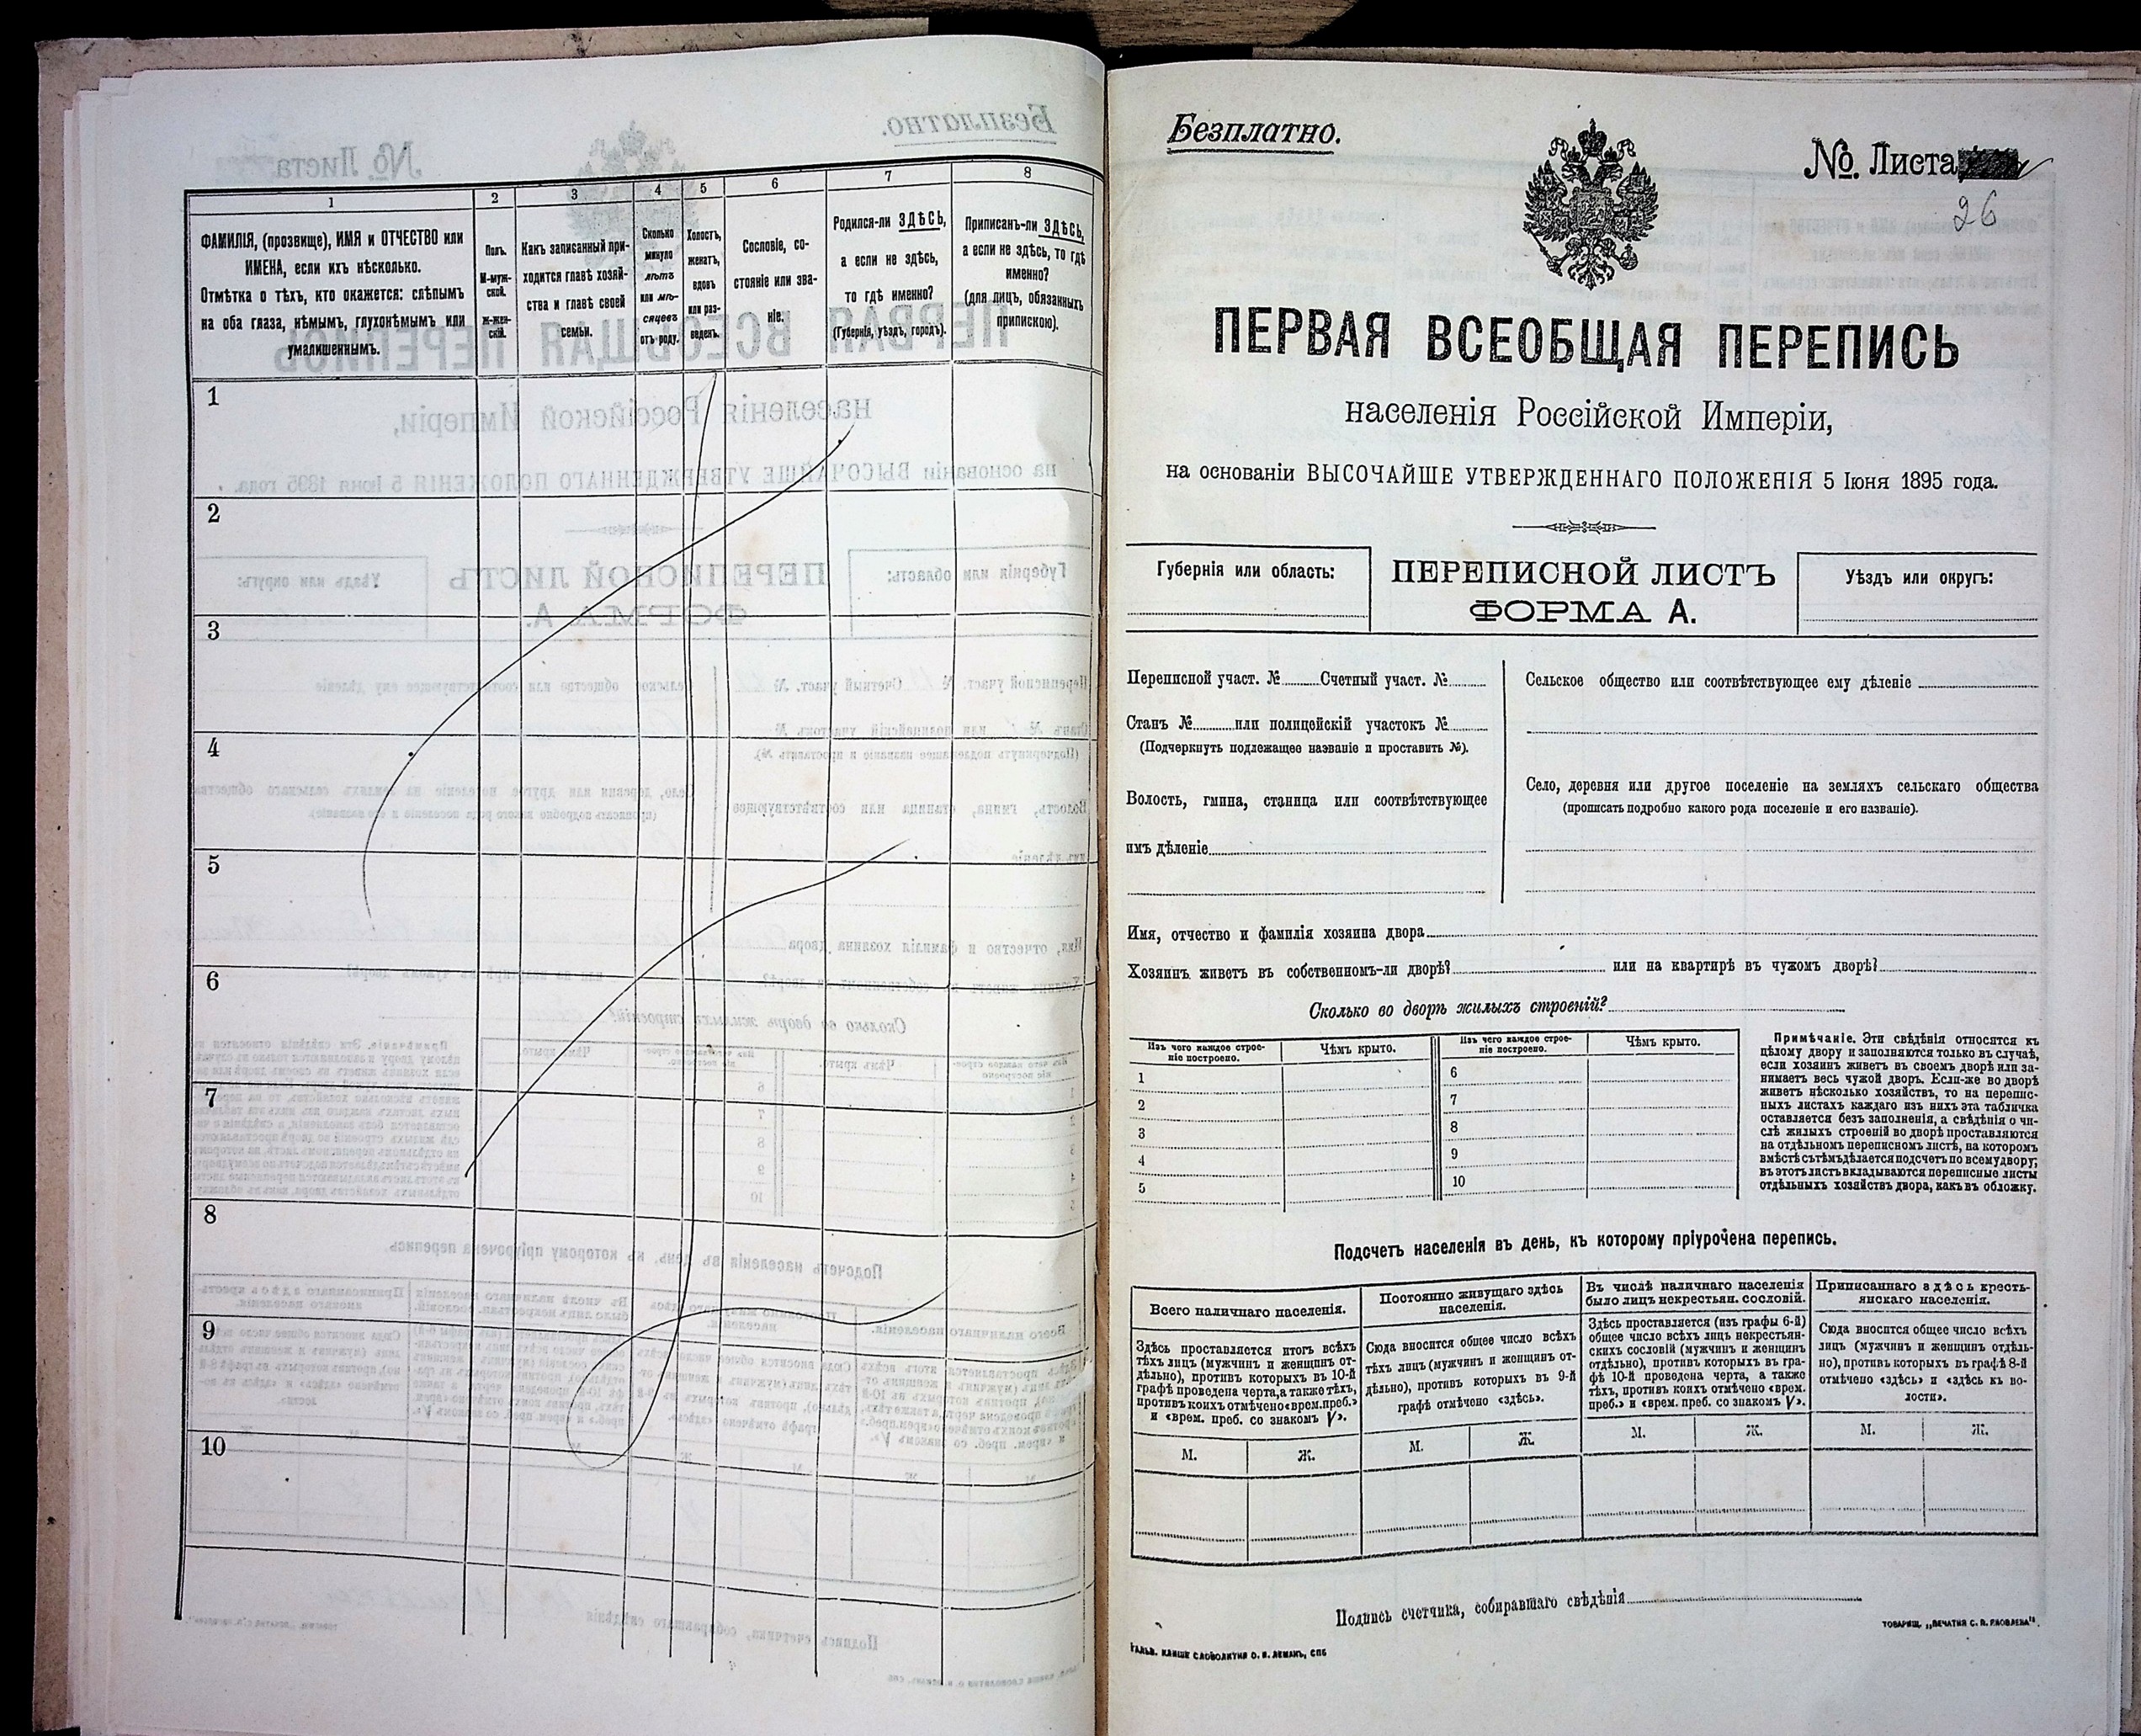 1
2
3
4
5
6
7
8
ФАМИЛІЯ, (прозвище), ИМЯ и ОТЧЕСТВО или
ИМЕНА, если ихъ нѣсколько.
Отмѣтка о тѣхъ, кто окажется: слѣпымъ
на оба глаза, нѣмымъ, глухонѣмымъ или
умалишеннымъ.
Полъ.
М-муж-
ской.
ж-жен-
скій.
Какъ записанный при-
ходится главѣ хозяй-
ства и главѣ своей
семьи.
Сколько
минуло
лѣтъ
или мѣ-
сяцевъ
отъ роду.
Холостъ,
женатъ,
вдовъ
или раз-
веденъ.
Сословіе, со-
стояніе или зва-
ніе.
Родился-ли ЗДѢСЬ,
а если не здѣсь,
то гдѣ именно?
(Губернія, уѣздъ, городъ).
Приписанъ-ли ЗДѢСЬ,
а если не здѣсь, то гдѣ
именно?
(для лицъ, обязанныхъ
припискою).
1
2
3
4
5
6
7
8
9
10
Безплатно.
№. Листа
26
ПЕРВАЯ ВСЕОБЩАЯ ПЕРЕПИСЬ
населенія Россійской Имперіи,
на основаніи ВЫСОЧАЙШЕ УТВЕРЖДЕННАГО ПОЛОЖЕНІЯ 5 Іюня 1895 года.
Губернія или область:
ПЕРЕПИСНОЙ ЛИСТЪ
ФОРМА А.
Уѣздъ или округъ:
Переписной участ. № Счетный участ. №
Станъ № или полицейскій участокъ №
(Подчеркнуть подлежащее названіе и проставить №).
Волость, гмина, станица или соотвѣтствующее
имъ дѣленіе
Сельское общество или соотвѣтствующее ему дѣленіе
Село, деревня или другое поселеніе на земляхъ сельскаго общества
(прописать подробно какого рода поселеніе и его названіе).
Имя, отчество и фамилія хозяина двора
Хозяинъ живетъ въ собственномъ-ли дворѣ? или на квартирѣ въ чужомъ дворѣ?
Сколько во дворѣ жилыхъ строеній?
Изъ чего каждое строе-
ніе построено.
Чѣмъ крыто.
Изъ чего каждое строе-
ніе построено.
Чѣмъ крыто.
1
2
3
4
5
6
7
8
9
10
Примѣчаніе. Эти свѣдѣнія относятся къ
цѣлому двору и заполняются только въ случаѣ,
если хозяинъ живетъ въ своемъ дворѣ или за-
нимаетъ весь чужой дворъ. Если-же во дворѣ
живетъ нѣсколько хозяйствъ, то на перепис-
ныхъ листахъ каждаго изъ нихъ эта табличка
оставляется безъ заполненія, а свѣдѣнія о чи-
слѣ жилыхъ строеній во дворѣ проставляются
на отдѣльномъ переписномъ листѣ, на которомъ
вмѣстѣ съ тѣмъ дѣлается подсчетъ по всему двору;
въ этотъ листъ вкладываются переписные листы
отдѣльныхъ хозяйствъ двора, какъ въ обложку.
Подсчетъ населенія въ день, къ которому пріурочена перепись.
Всего наличнаго населенія.
Постоянно живущаго здѣсь
населенія.
Въ числѣ наличнаго населенія
было лицъ некрестьян. сословій.
Приписаннаго здѣсь кресть-
янскаго населенія.
Здѣсь проставляется итогъ всѣхъ
тѣхъ лицъ (мужчинъ и женщинъ от-
дѣльно), противъ которыхъ въ 10-й
графѣ проведена черта, а также тѣхъ,
противъ коихъ отмѣчено «врем. преб.»
и «врем. преб. со знакомъ V».
Сюда вносится общее число всѣхъ
тѣхъ лицъ (мужчинъ и женщинъ от-
дѣльно), противъ которыхъ въ 9-й
графѣ отмѣчено «здѣсь».
Здѣсь проставляется (изъ графы 6-й)
общее число всѣхъ лицъ некрестьян-
скихъ сословій (мужчинъ и женщинъ
отдѣльно), противъ которыхъ въ гра-
фѣ 10-й проведена черта, а также
тѣхъ, противъ коихъ отмѣчено «врем.
преб.» и «врем. преб. со знакомъ V».
Сюда вносится общее число всѣхъ
лицъ (мужчинъ и женщинъ отдѣль-
но), противъ которыхъ въ графѣ 8-й
отмѣчено «здѣсь» и «здѣсь къ во-
лости».
М. Ж. М. Ж. М. Ж. М. Ж.
Подпись счетчика, собиравшаго свѣдѣнія
ГАЛЬВ. КЛИШЕ СЛОВОЛИТНИ О. И. ЛЕМАНЪ, СПБ
ТОВАРИЩ. „ПЕЧАТНЯ С. П. ЯКОВЛЕВА“.